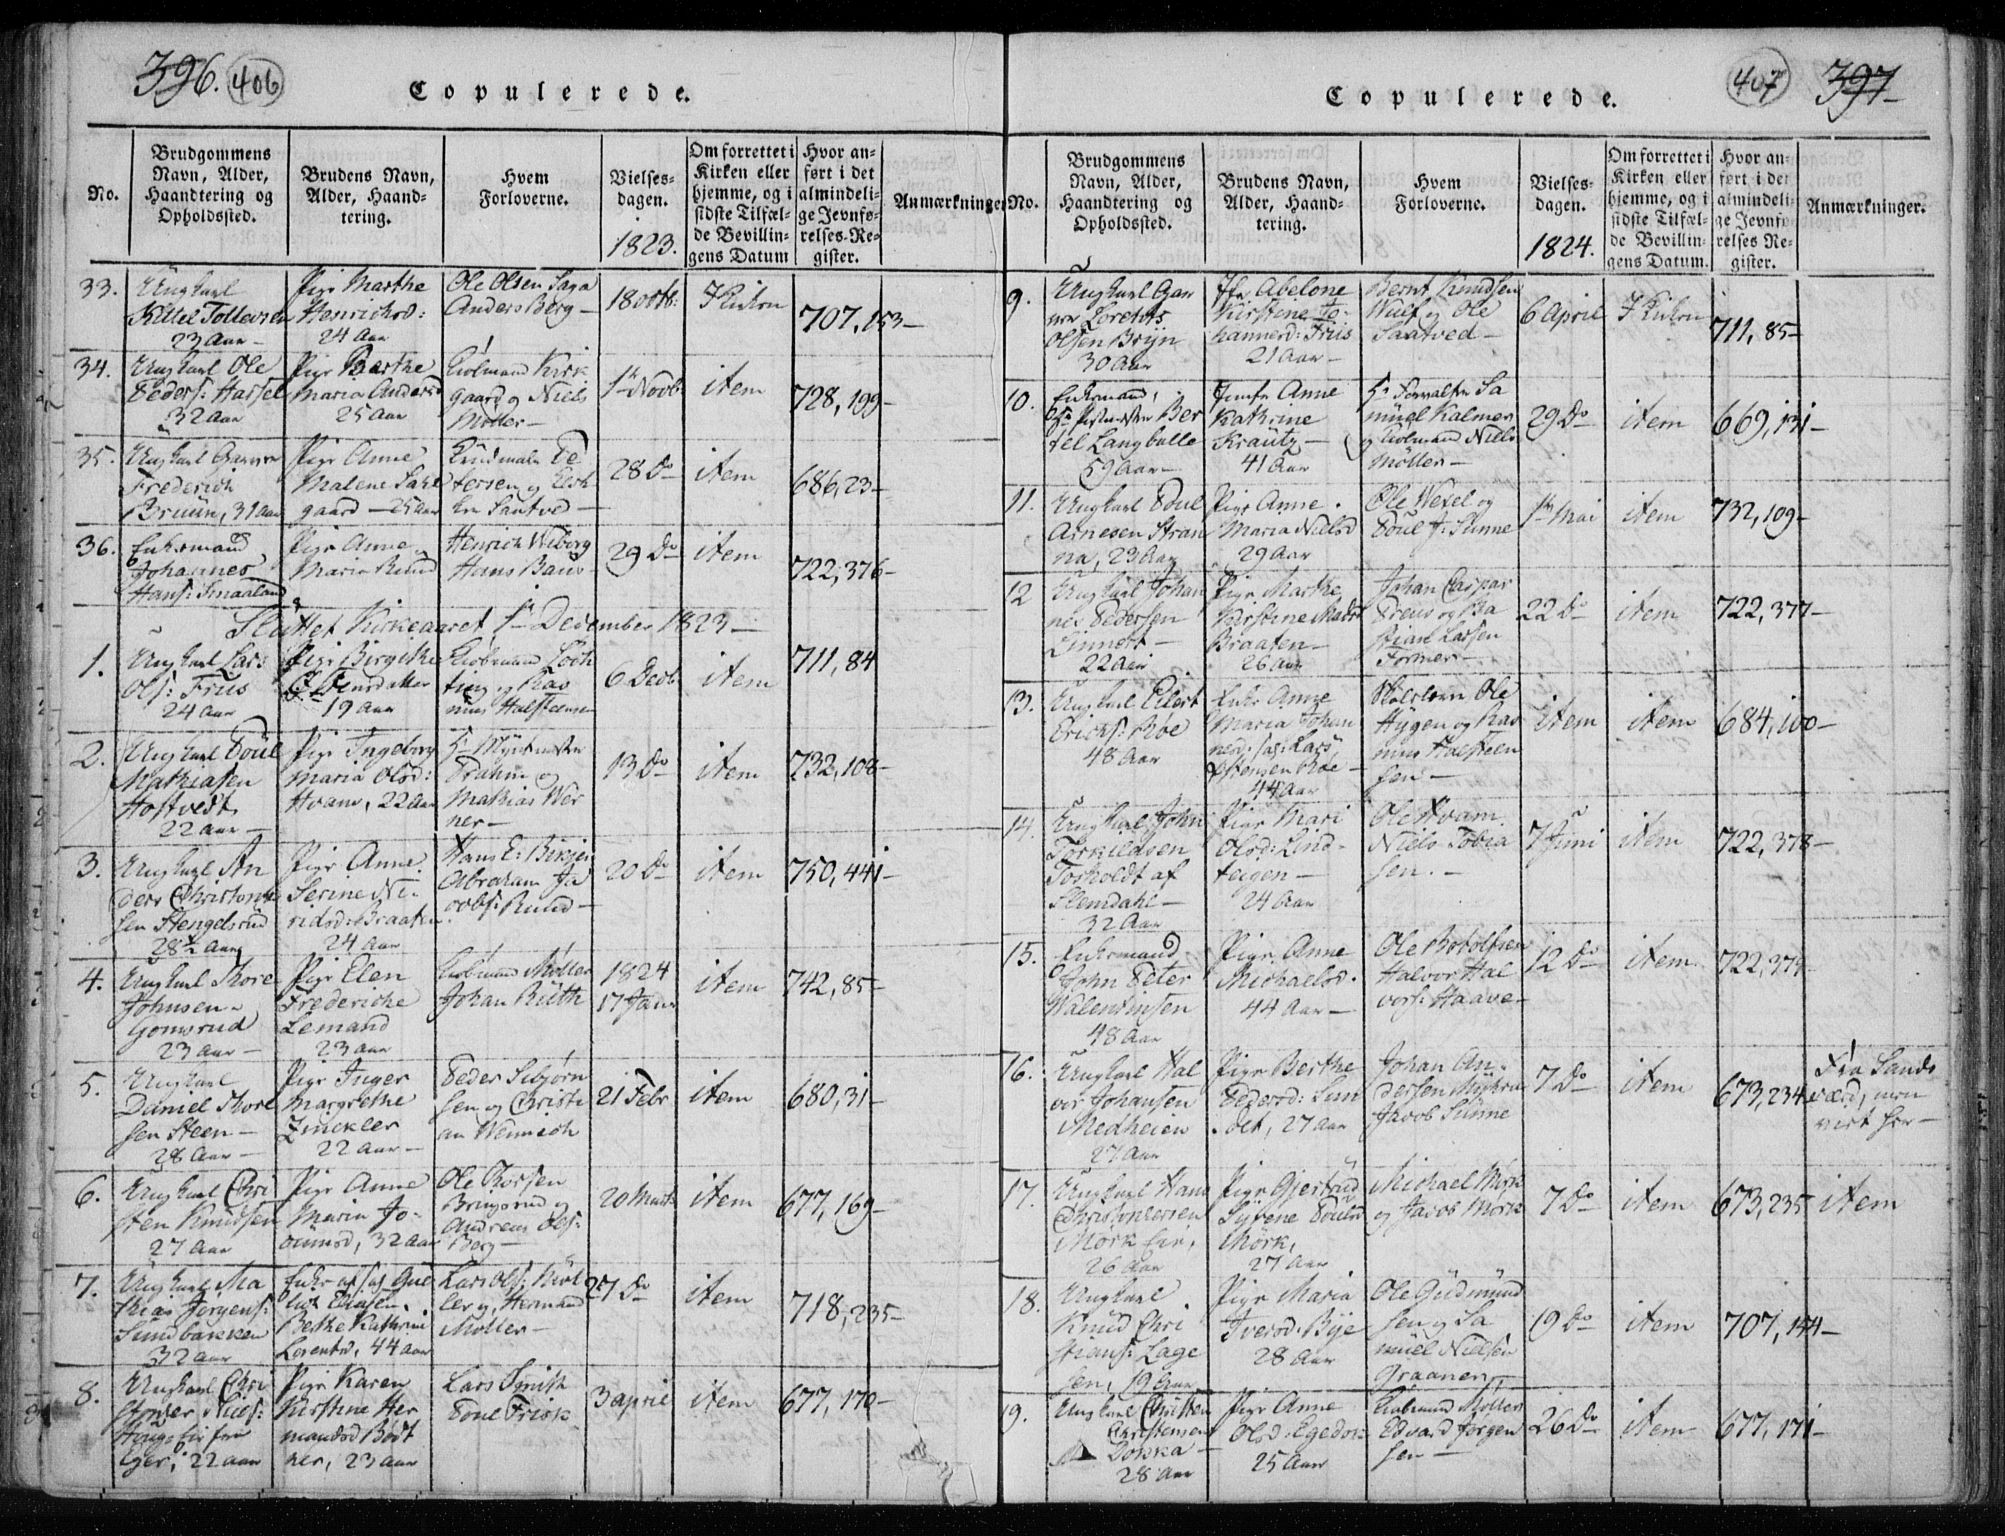 396. 406
Copulerede.
No.
Brudgommens
Navn, Alder,
Haandtering og
Opholdssted.
Brudens Navn,
Alder, Haand-
tering.
Hvem
Forloverne.
Vielses-
dagen.
1823.
Om forrettet i
Kirken eller
hjemme, og i
sidste Tilfæl-
de Bevillin-
gens Datum
Hvor an-
ført i det
almindeli-
ge Jevnfø-
relses-Re-
gister.
Anmærkninger
33.
Ungkarl
Kittel Tollevsen
23 Aar
Pige Marthe
Henrichsd:
24 Aar
Ole Olsen Saga
Anders Berg
18 Octb:
I Kirken
707, 153
34.
Ungkarl Ole
Peders: Hassel
32 Aar
Pige Berthe
Maria Andersd
25 Aar
Kirk
gaard og Niels
Møller
1 Novb
item
728, 199
35.
Ungkarl
Frederich
Bruun, 31 Aar
Pige Anne
Malene
gaard 25 Aar
Pe
tersen og
Saatved
28 Do
item
686, 23
36.
Enkemand
Johannes
Hans: Smaaland
Pige Anne
Maria Ruud
Henrich Wiborg
Hans
29 Do
item
722, 376
Sluttet Kirkeaaret 1 December 1823
1.
Ungkarl Lars
Ols: Friis
24 Aar
Pige Birgithe
19 Aar
og Ras
mus Halsteensen
6 Decb
item
711, 84
2.
Ungkarl Poul
Mathiasen
Hostvedt
22 Aar
Pige Ingeborg
Maria Olsd:
Hvam, 22 Aar
Hr Myntmester
Prahm og
Mathias Wer
ner
13 Do
item
732, 108
3.
Ungkarl An
ders Christoph
sen Stengelsrud
28½ Aar
Pige Anne
Serine
Braaten
24 Aar
Hans E:
Abraham Ja
cobs: Ruud
20 Do
item
750, 441
4.
Ungkarl Thore
Johnsen
Gomsrud
23 Aar
Pige Elen
Frederiche
Lemand
23 Aar
Møller
Johan Rüth
1824
17 Janr
item
742, 85
5.
Ungkarl
Daniel Thore
sen Steen
28 Aar
Pige Inger
Margrethe
Zinckler
22 Aar
Peder Sebjørn
sen og Christi
an Wennech
21 Febr
item
680, 31
6.
Ungkarl Chri
sten Knudsen
27 Aar
Pige Anne
Maria Jo-
32 Aar
Ole Thorsen
Bringsrud og
Andreas Ols:
Berg
20 Marts
item
677, 169
7.
Ungkarl Ma
thias Jørgens:
Sundbakken
32 Aar
Enke af sal Gul
Berthe Kathrine
Lorentsd, 44 Aar
Lars Ols: Møl
ler og Herman
Møller
27 Do
item
718, 235
8.
Ungkarl Chri
stopher Niels:
fra
Eger, 22 Aar
Pige Karen
Kirstine Her
mansd Bødt
ker, 23 Aar
Lars Smith
Poul Frisk
3 April
item
677, 170
407 397
Copulerede.
No.
Brudgommens
Navn, Alder,
Haandtering og
Opholdssted.
Brudens Navn,
Alder, Haand-
tering.
Hvem
Forloverne.
Vielses-
dagen.
1824.
Om forrettet i
Kirken eller
hjemme, og i
sidste Tilfæl-
de Bevillin-
gens Datum.
Hvor an-
ført i det
almindeli-
ge Jevnfø-
relses Re-
gister.
Anmærkninger.
9.
Ungkarl Gun
ner Lorents
Olsen Bryn
30 Aar
Jfr Abelone
Kirstine Jo-
hannesd: Friis
21 Aar
Bernt Knudsen
Wulf og Ole
Saatved
6 April
I Kirken
711, 85
10.
Enkemand,
Hr Ber
tel Langballe
59 Aar
Jomfr Anne
Kathrine
Krautz
41 Aar
Hr Forvalter Sa
muel Kalmer
og Niels
Møller
29 Do
item
669, 131
11.
Ungkarl Poul
Arnesen Stran
na, 23 Aar
Pige Anne
Maria Nielsd
29 Aar
Ole Wexel og
Poul J: Sunne
1 Mai
item
732, 109
12
Ungkarl Johan
nes Pedersen
Linnert
22 Aar
Pige Marthe
Kirstine Madsd
Braaten
26 Aar
Johan Caspar
Preus og Ba
stian Larsen
Former
22 Do
item
722, 377
13.
Ungkarl Eilert
Erichs: Roe
48 Aar
Enke Anne
Maria Johan
nesd: sal: Lars
Ostensen Roe
44 Aar
Ole
Hygen og Ras
mus Halsteen
sen
item
item
684, 100
14.
Ungkarl John
Torkildsen
Torholdt af
Slemdahl
32 Aar
Pige Mari
Olsd: Lind-
teigen
24 Aar
Ole Hvam.
Niels Tobia
sen.
7 Juni
item
722, 378
15.
Enkemand
John Peter
Walentinsen
48 Aar
Pige Anne
Michaelsd.
44 Aar
Ole Botolfsen
Halvor Hal
vors: Haave
12 Do
item
722, 379
16.
Ungkarl Hal
vor Johansen
Medheien
27 Aar
Pige Berthe
Pedersd: Sun
det, 27 Aar
Johan An-
dersen Myhra
Jacob Sunne
7 Do
item
673, 234
Fra Sands
værd, men
viet her
17.
Ungkarl Hans
Christophersen
Mørk
26 Aar
Pige Gjertrud
Sÿvene Poulsd
Mørk,
27 Aar
Michael Mørk
og Jacob Mørk
7 Do
item
673, 235
item
18.
Ungkarl
Knud Chri
stians: Lage
sen, 19 Aar
Pige Maria
Iversd. Bye
28 Aar
Ole Gudmund
sen og Sa
muel Nielsen
Graanen
19 Do
item
707, 144
19.
Ungkarl Christen
Christensen
Dokka
28 Aar
Pige Anne
Olsd: Egedok
25 Aar
Møller
Edvard Jørgen
sen
26 Do
item
677, 171